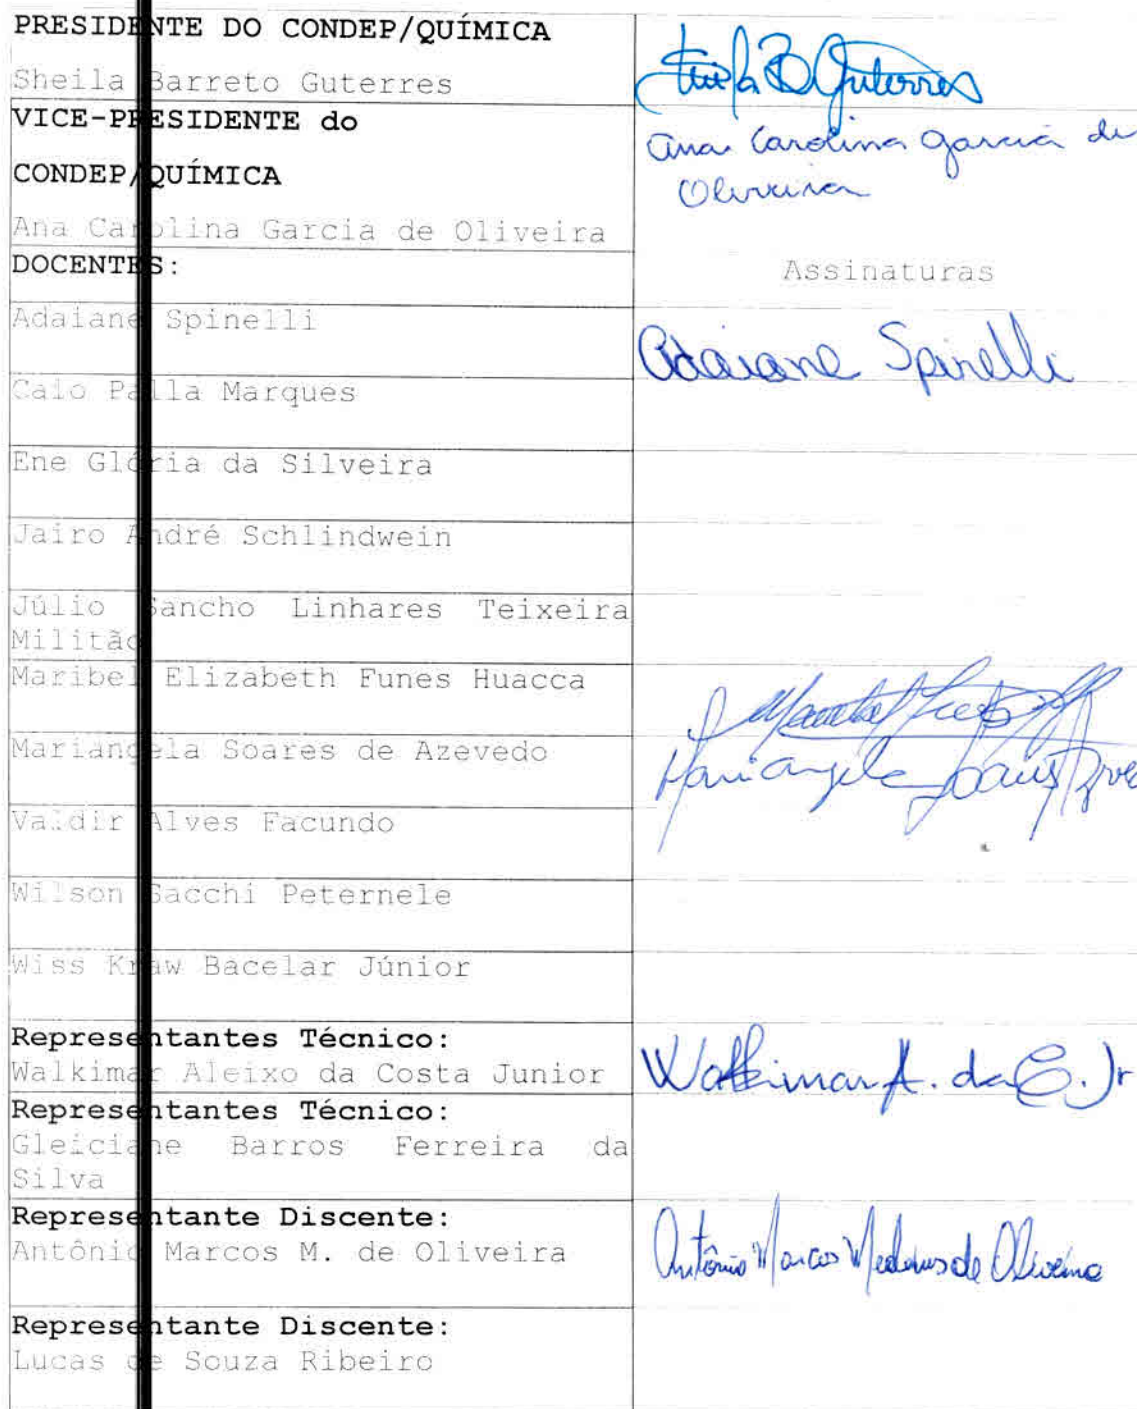 PRESIDENTE DO CONDEP/QUÍMICA
Sheila Barreto Guterres
VICE-PRESIDENTE do
CONDEP/QUÍMICA
Ana Carolina Garcia de
Oliveira
Ana Carolina Garcia de Oliveira
DOCENTES:
Assinaturas
Adaiane Spinelli
Adaiane Spinelli
Caio Palla Marques
Ene Glória da Silveira
Jairo André Schlindwein
Júlio Sancho Linhares Teixeira
Militão
Maribel Elizabeth Funes Huacca
Mariangela Soares de Azevedo
Mariangela Soares
Valdir Alves Facundo
Wilson Sacchi Peternele
Wiss Kraw Bacelar Júnior
Representantes Técnico:
Walkimar Aleixo da Costa Junior
Walkimar A. da C. Jr
Representantes Técnico:
Gleiciane Barros Ferreira da
Silva
Representante Discente:
Antônio Marcos M. de Oliveira
Antônio Marcos Medeiros de Oliveira
Representante Discente:
Lucas de Souza Ribeiro